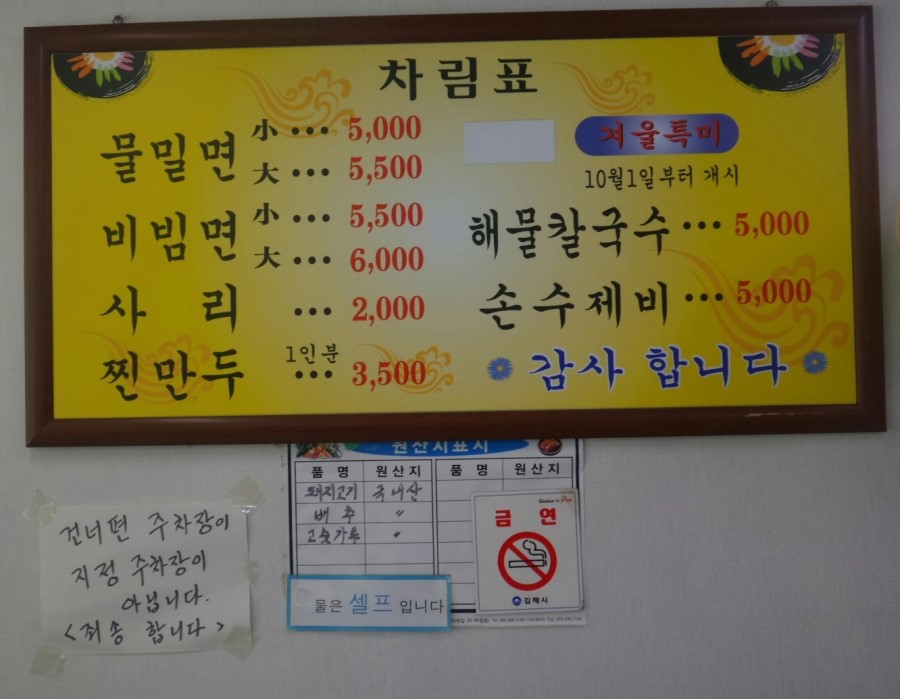 차림표
물밀면 小 ••• 5,000
大 ••• 5,500
비빔면 小 ••• 5,500
大 ••• 6,000
사 리 ••• 2,000
찐만두 1인분 ••• 3,500
겨울특미
10월1일부터 개시
해물칼국수 ••• 5,000
손수제비 ••• 5,000
감사 합니다
원산지표시
품 명 원산지 품 명 원산지
돼지고기 국내산
배추 〃
고춧가루 〃
금 연
김해시
물은 셀프 입니다
건너편 주차장이
지정 주차장이
아닙니다.
<죄송 합니다>